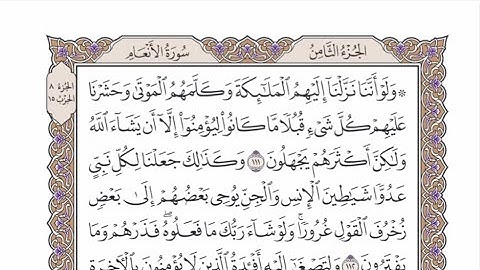 الجُزْءُ الثَّامِنُ سُورَةُ الأَنْعَامِ
الجزء ٨
الحزب ١٥
۞ وَلَوْ أَنَّنَا نَزَّلْنَا إِلَيْهِمُ الْمَلَٰٓئِكَةَ وَكَلَّمَهُمُ الْمَوْتَىٰ وَحَشَرْنَا
عَلَيْهِمْ كُلَّ شَيْءٍ قُبُلًا مَّا كَانُوا۟ لِيُؤْمِنُوٓا۟ إِلَّآ أَن يَشَآءَ اللَّهُ
وَلَٰكِنَّ أَكْثَرَهُمْ يَجْهَلُونَ ١١١ وَكَذَٰلِكَ جَعَلْنَا لِكُلِّ نَبِيٍّ
عَدُوًّا شَيَٰطِينَ الْإِنسِ وَالْجِنِّ يُوحِى بَعْضُهُمْ إِلَىٰ بَعْضٍ
زُخْرُفَ الْقَوْلِ غُرُورًا ۚ وَلَوْ شَآءَ رَبُّكَ مَا فَعَلُوهُ ۖ فَذَرْهُمْ وَمَا
يَفْتَرُونَ ١١٢ وَلِتَصْغَىٰٓ إِلَيْهِ أَفْـِٔدَةُ الَّذِينَ لَا يُؤْمِنُونَ بِالْءَاخِرَةِ